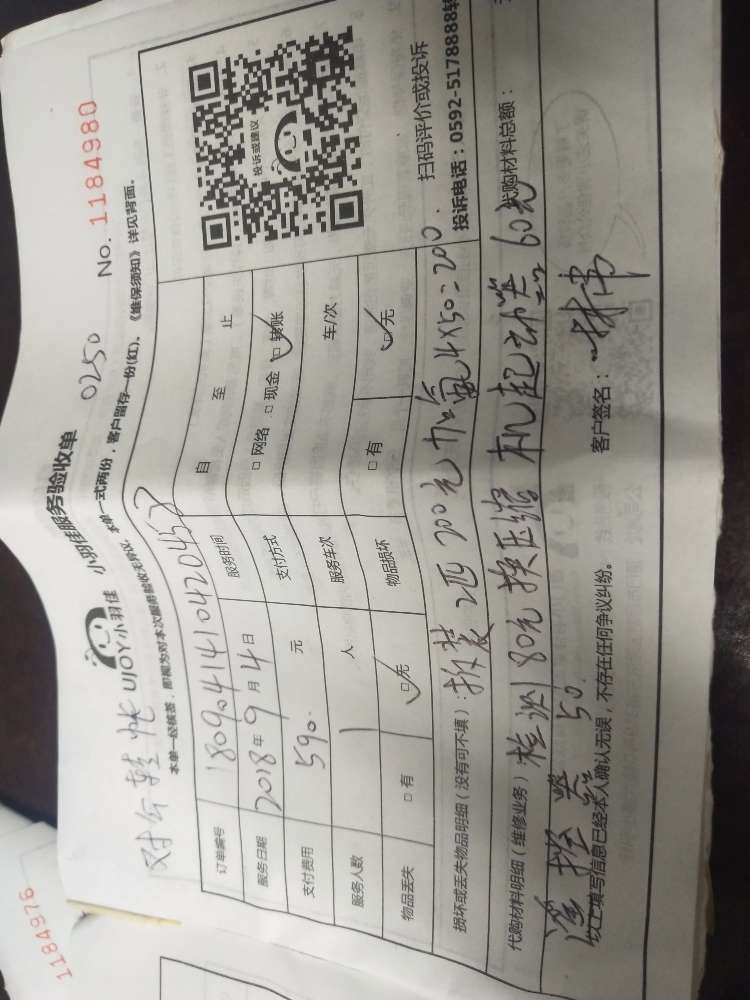 对公转账
UJOY小羽佳 小羽佳服务验收单 0250 No. 1184980
本单一经核签，即视为对本次服务验收无争议，本单一式两份，客户留存一份(红)，《维保须知》详见背面。
订单编号 18090414104204532 服务时间 自 至 止
服务日期 2018年9月4日 支付方式 □网络 □现金 □转账
支付费用 590 元 服务车次 车/次
服务人数 1 人 物品损坏 □有 □无
物品丢失 □有 □无
投诉或建议
扫码评价或投诉
投诉电话：0592-5178888转
损坏或丢失物品明细（没有可不填）：拆装2匹200元 加氟4×50=200
代购材料明细（维修业务）检测80元 换压缩机起动器60元 代购材料总额：
50
以上填写信息已经本人确认无误，不存在任何争议纠纷。 客户签名：
1184976